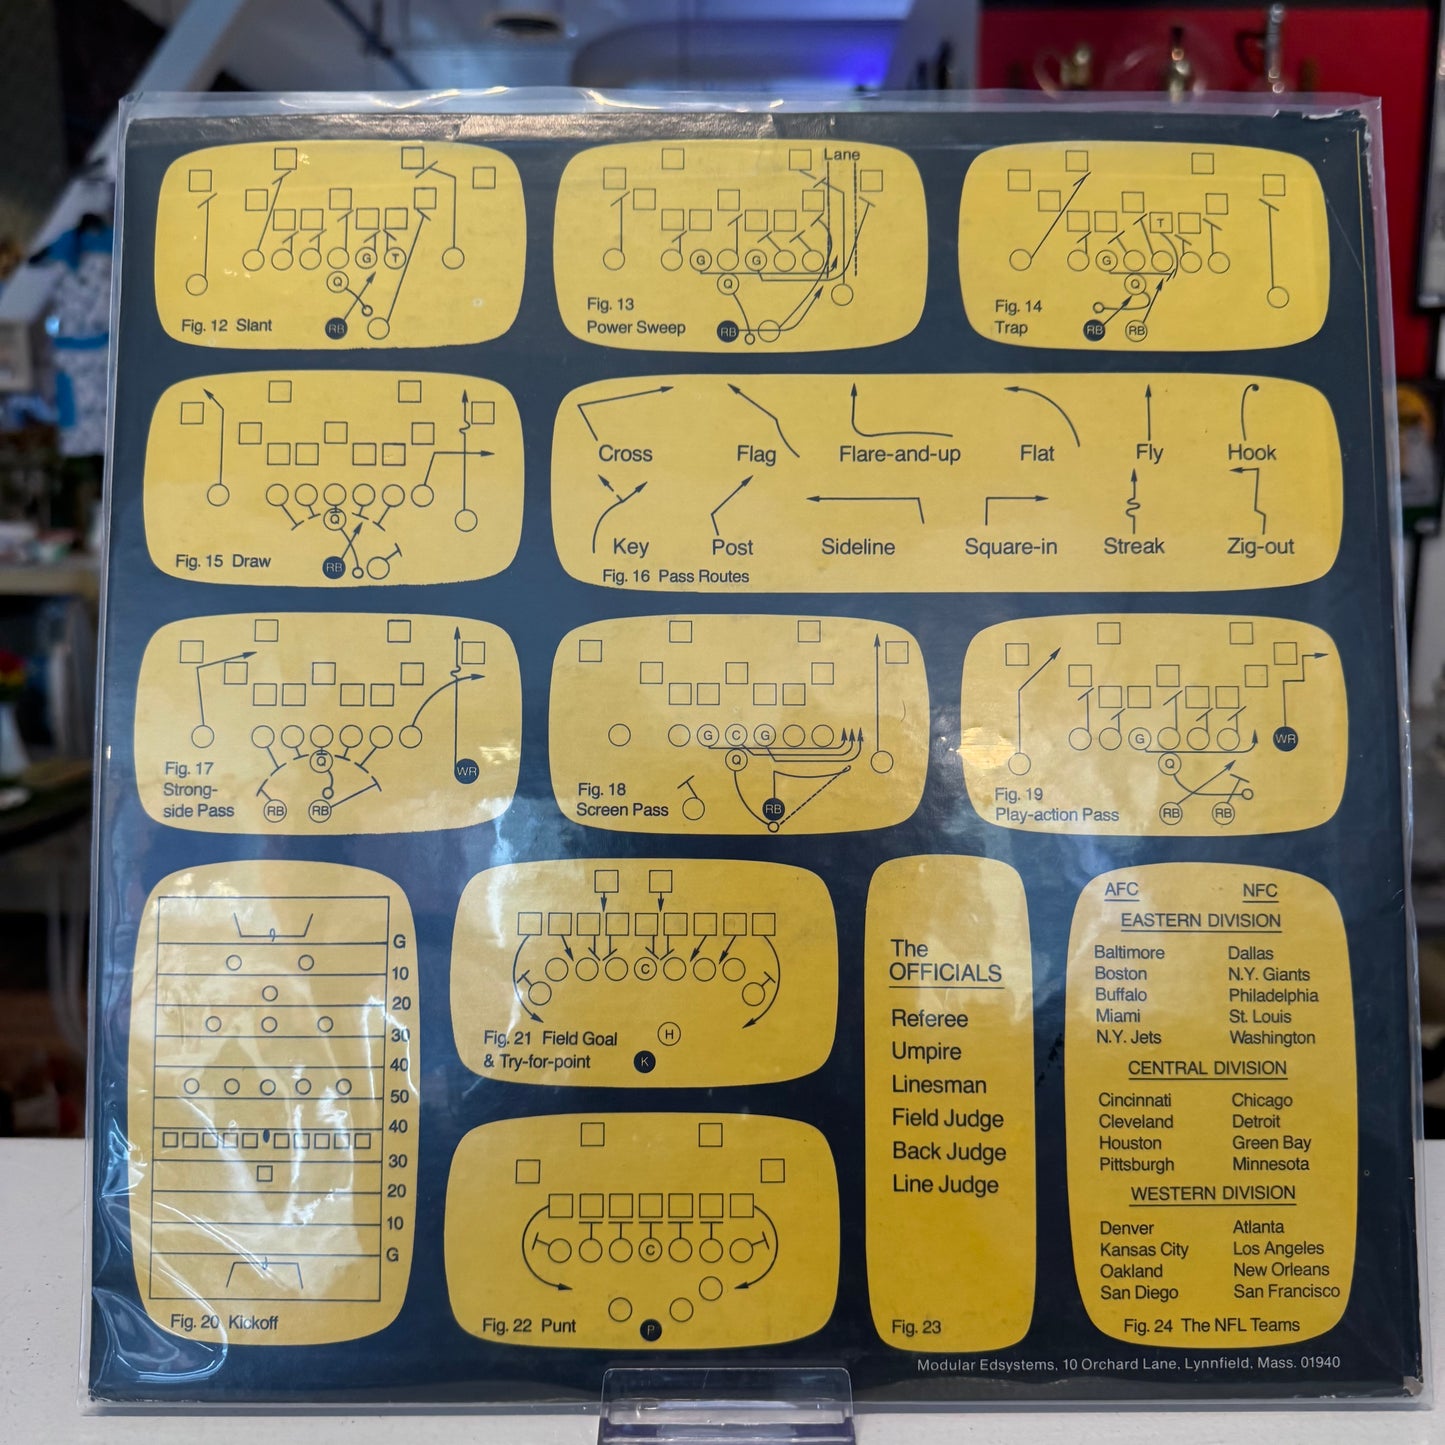 Lane
G
T
Q
RB
Fig. 12 Slant
G
G
Q
RB
Fig. 13
Power Sweep
T
G
Q
RB
RB
Fig. 14
Trap
Q
RB
Fig. 15 Draw
Cross
Flag
Flare-and-up
Flat
Fly
Hook
Key
Post
Sideline
Square-in
Streak
Zig-out
Fig. 16 Pass Routes
Q
WR
RB
RB
Fig. 17
Strong-
side Pass
G
C
G
Q
RB
Fig. 18
Screen Pass
G
WR
Q
RB
RB
Fig. 19
Play-action Pass
G
10
20
30
40
50
40
30
20
10
G
Fig. 20 Kickoff
C
H
K
Fig. 21 Field Goal
& Try-for-point
C
P
Fig. 22 Punt
The
OFFICIALS
Referee
Umpire
Linesman
Field Judge
Back Judge
Line Judge
Fig. 23
AFC NFC
EASTERN DIVISION
Baltimore Dallas
Boston N.Y. Giants
Buffalo Philadelphia
Miami St. Louis
N.Y. Jets Washington
CENTRAL DIVISION
Cincinnati Chicago
Cleveland Detroit
Houston Green Bay
Pittsburgh Minnesota
WESTERN DIVISION
Denver Atlanta
Kansas City Los Angeles
Oakland New Orleans
San Diego San Francisco
Fig. 24 The NFL Teams
Modular Edsystems, 10 Orchard Lane, Lynnfield, Mass. 01940